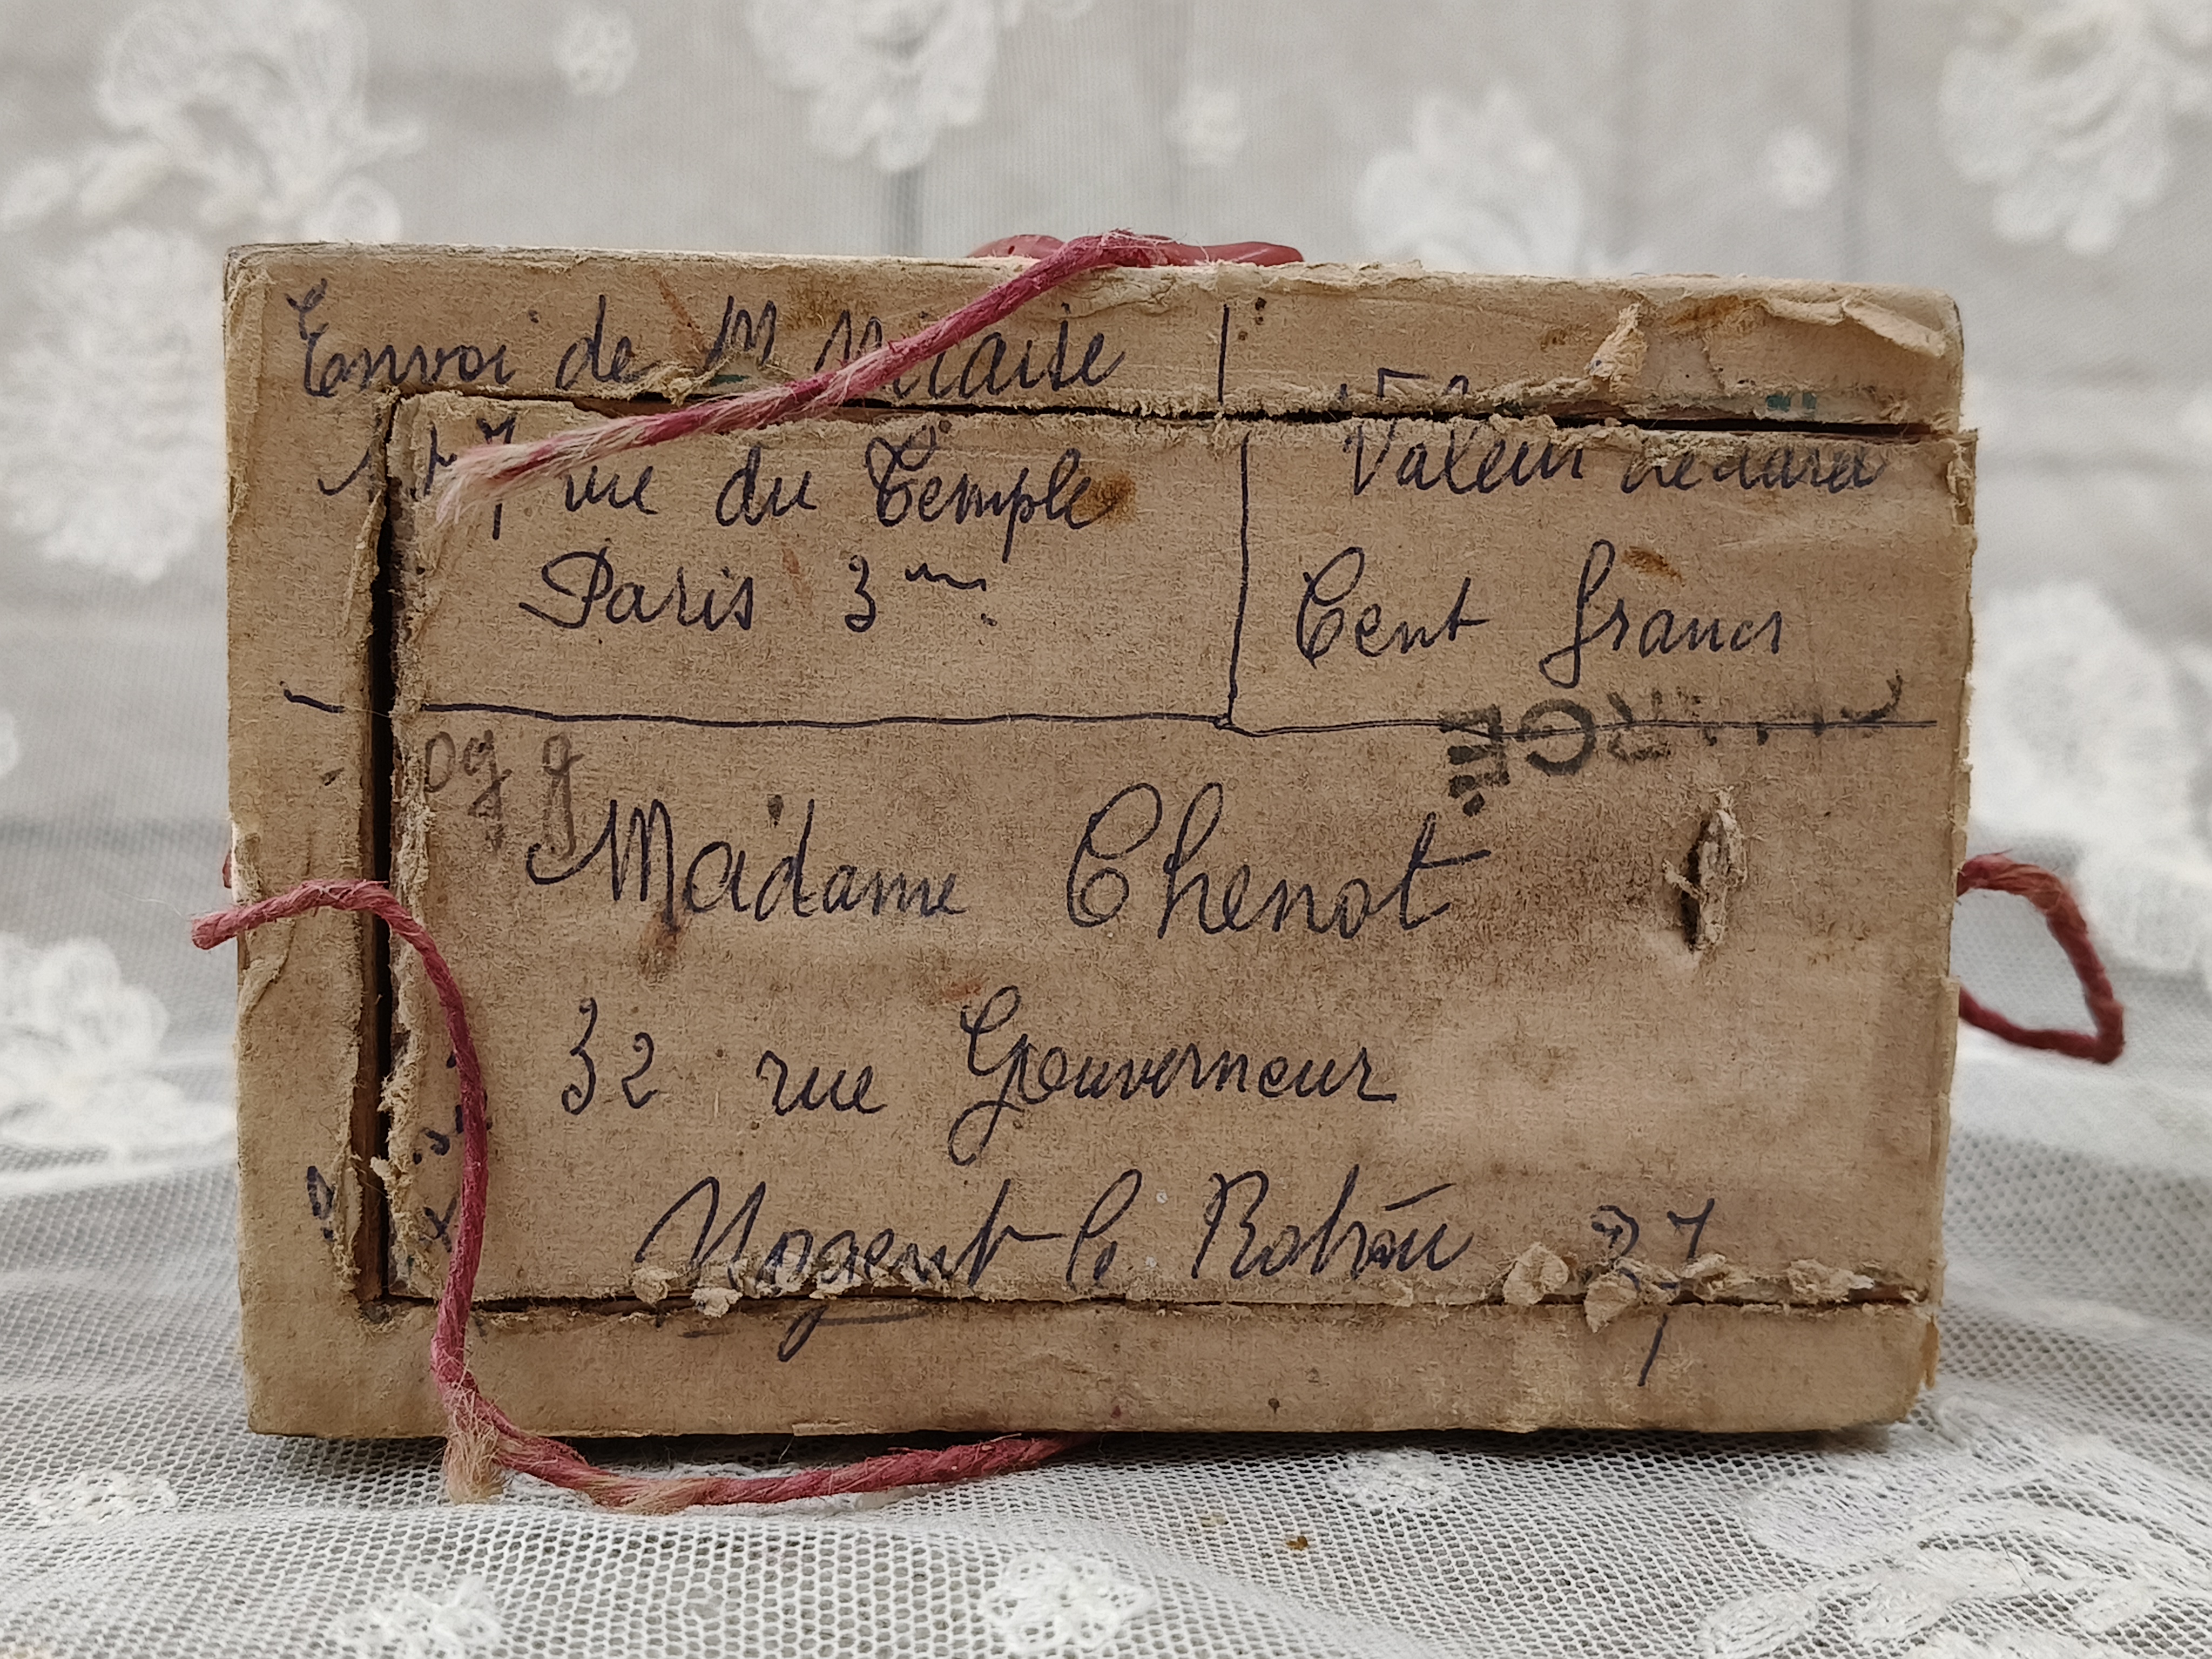 Envoi de M
rue du Temple
Paris 3me
Valeur
Cent francs
Madame Chenot
32 rue Gouverneur
Nogent le Rotrou